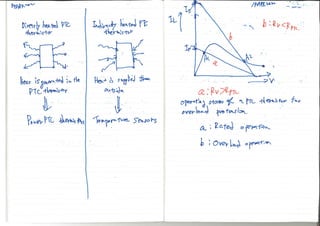 Directly heated PTC
thermistor
Heat is generated in the
PTC thermistor
Power PTC thermistors
Indirectly heated PTC
thermistor
Heat is supplied from
outside
Temperature Sensors
IL
b
b : RV < RPTC
a
V
a : RV > RPTC
operating states of a PTC thermistor for
overload protection
a : Rated operation
b : Overload operation